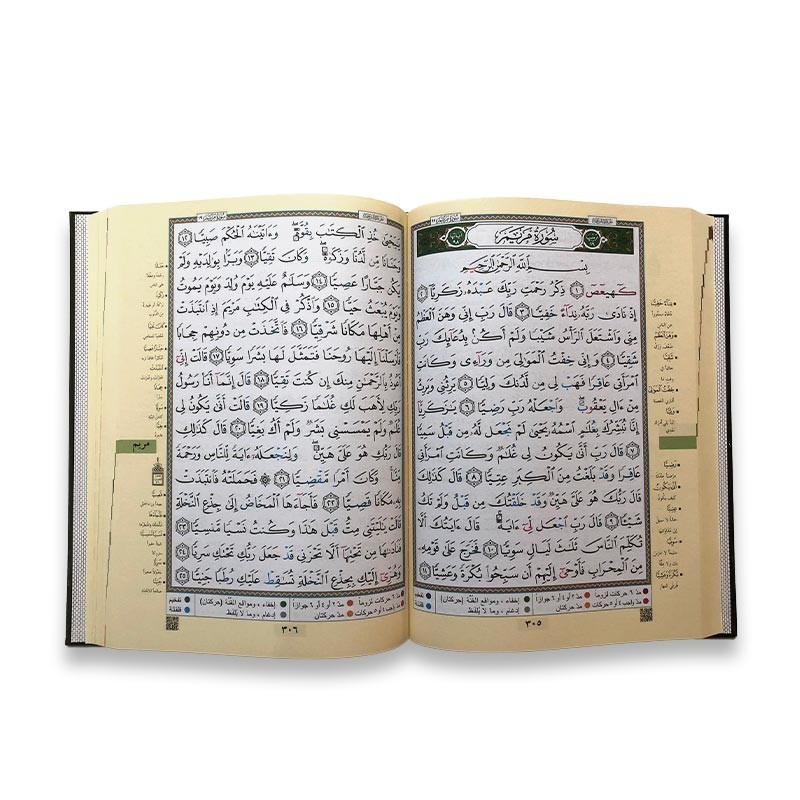 سُورَةُ مَرْيَمَ
بِسْمِ ٱللَّهِ ٱلرَّحْمَٰنِ ٱلرَّحِيمِ
كٓهيعٓصٓ ١ ذِكْرُ رَحْمَتِ رَبِّكَ عَبْدَهُۥ زَكَرِيَّآ ٢
إِذْ نَادَىٰ رَبَّهُۥ نِدَآءً خَفِيًّا ٣ قَالَ رَبِّ إِنِّي وَهَنَ ٱلْعَظْمُ
مِنِّي وَٱشْتَعَلَ ٱلرَّأْسُ شَيْبًا وَلَمْ أَكُنۢ بِدُعَآئِكَ رَبِّ
شَقِيًّا ٤ وَإِنِّي خِفْتُ ٱلْمَوَٰلِيَ مِن وَرَآءِي وَكَانَتِ
ٱمْرَأَتِي عَاقِرًا فَهَبْ لِي مِن لَّدُنكَ وَلِيًّا ٥ يَرِثُنِي وَيَرِثُ
مِنْ ءَالِ يَعْقُوبَۖ وَٱجْعَلْهُ رَبِّ رَضِيًّا ٦ يَٰزَكَرِيَّآ
إِنَّا نُبَشِّرُكَ بِغُلَٰمٍ ٱسْمُهُۥ يَحْيَىٰ لَمْ نَجْعَل لَّهُۥ مِن قَبْلُ سَمِيًّا
٧ قَالَ رَبِّ أَنَّىٰ يَكُونُ لِي غُلَٰمٌ وَكَانَتِ ٱمْرَأَتِي
عَاقِرًا وَقَدْ بَلَغْتُ مِنَ ٱلْكِبَرِ عِتِيًّا ٨ قَالَ كَذَٰلِكَ
قَالَ رَبُّكَ هُوَ عَلَيَّ هَيِّنٌ وَقَدْ خَلَقْتُكَ مِن قَبْلُ وَلَمْ تَكُ
شَيْـًٔا ٩ قَالَ رَبِّ ٱجْعَل لِّيٓ ءَايَةًۖ قَالَ ءَايَتُكَ أَلَّا
تُكَلِّمَ ٱلنَّاسَ ثَلَٰثَ لَيَالٍ سَوِيًّا ١٠ فَخَرَجَ عَلَىٰ قَوْمِهِۦ
مِنَ ٱلْمِحْرَابِ فَأَوْحَىٰٓ إِلَيْهِمْ أَن سَبِّحُوا۟ بُكْرَةً وَعَشِيًّا ١١
مدّ ٦ حركات لزوماً
مدّ ٢ أو ٤ أو ٦ جوازاً
إخفاء، ومواقع الغنّة (حركتان)
تفخيم
مدّ واجب ٤ أو ٥ حركات
مدّ حركتان
إدغام، وما لا يُلفظ
قلقلة
٣٠٥
يَٰيَحْيَىٰ خُذِ ٱلْكِتَٰبَ بِقُوَّةٍۖ وَءَاتَيْنَٰهُ ٱلْحُكْمَ صَبِيًّا ١٢
وَحَنَانًا مِّن لَّدُنَّا وَزَكَوٰةًۖ وَكَانَ تَقِيًّا ١٣ وَبَرًّۢا بِوَٰلِدَيْهِ وَلَمْ
يَكُن جَبَّارًا عَصِيًّا ١٤ وَسَلَٰمٌ عَلَيْهِ يَوْمَ وُلِدَ وَيَوْمَ يَمُوتُ
وَيَوْمَ يُبْعَثُ حَيًّا ١٥ وَٱذْكُرْ فِي ٱلْكِتَٰبِ مَرْيَمَ إِذِ ٱنتَبَذَتْ
مِنْ أَهْلِهَا مَكَانًا شَرْقِيًّا ١٦ فَٱتَّخَذَتْ مِن دُونِهِمْ حِجَابًا
فَأَرْسَلْنَآ إِلَيْهَا رُوحَنَا فَتَمَثَّلَ لَهَا بَشَرًا سَوِيًّا ١٧ قَالَتْ إِنِّيٓ
أَعُوذُ بِٱلرَّحْمَٰنِ مِنكَ إِن كُنتَ تَقِيًّا ١٨ قَالَ إِنَّمَآ أَنَا۠ رَسُولُ
رَبِّكِ لِأَهَبَ لَكِ غُلَٰمًا زَكِيًّا ١٩ قَالَتْ أَنَّىٰ يَكُونُ لِي
غُلَٰمٌ وَلَمْ يَمْسَسْنِي بَشَرٌ وَلَمْ أَكُ بَغِيًّا ٢٠ قَالَ كَذَٰلِكِ
قَالَ رَبُّكِ هُوَ عَلَيَّ هَيِّنٌۖ وَلِنَجْعَلَهُۥٓ ءَايَةً لِّلنَّاسِ وَرَحْمَةً
مِّنَّاۚ وَكَانَ أَمْرًا مَّقْضِيًّا ٢١ ۞ فَحَمَلَتْهُ فَٱنتَبَذَتْ
بِهِۦ مَكَانًا قَصِيًّا ٢٢ فَأَجَآءَهَا ٱلْمَخَاضُ إِلَىٰ جِذْعِ ٱلنَّخْلَةِ
قَالَتْ يَٰلَيْتَنِي مِتُّ قَبْلَ هَٰذَا وَكُنتُ نَسْيًا مَّنسِيًّا ٢٣
فَنَادَىٰهَا مِن تَحْتِهَآ أَلَّا تَحْزَنِي قَدْ جَعَلَ رَبُّكِ تَحْتَكِ سَرِيًّا ٢٤
وَهُزِّيٓ إِلَيْكِ بِجِذْعِ ٱلنَّخْلَةِ تُسَٰقِطْ عَلَيْكِ رُطَبًا جَنِيًّا ٢٥
مريم
مدّ ٦ حركات لزوماً
مدّ ٢ أو ٤ أو ٦ جوازاً
إخفاء، ومواقع الغنّة (حركتان)
تفخيم
مدّ واجب ٤ أو ٥ حركات
مدّ حركتان
إدغام، وما لا يُلفظ
قلقلة
٣٠٦